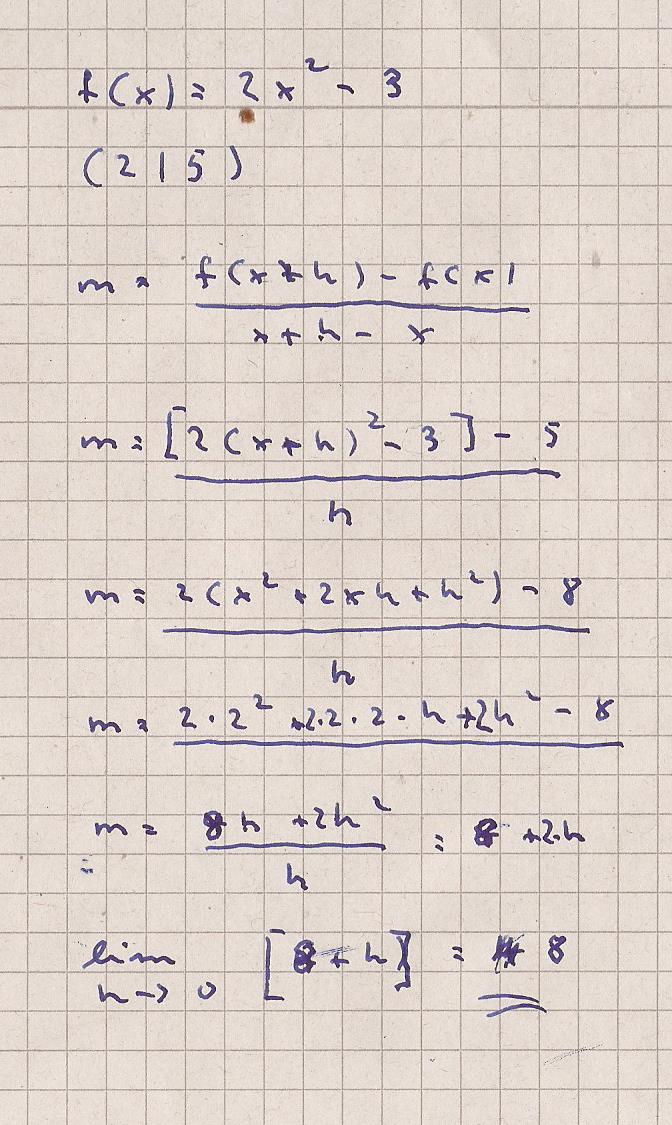 f(x) = 2x² - 3
(2 | 5)
m = f(x+h) - f(x)
x + h - x
m = [2(x+h)² - 3] - 5
h
m = 2(x² + 2xh + h²) - 8
h
m = 2·2² + 2·2·2·h + 2h² - 8
m = 8h + 2h² = 8 + 2·h
=
h
lim [8 + h] = 8
h -> 0